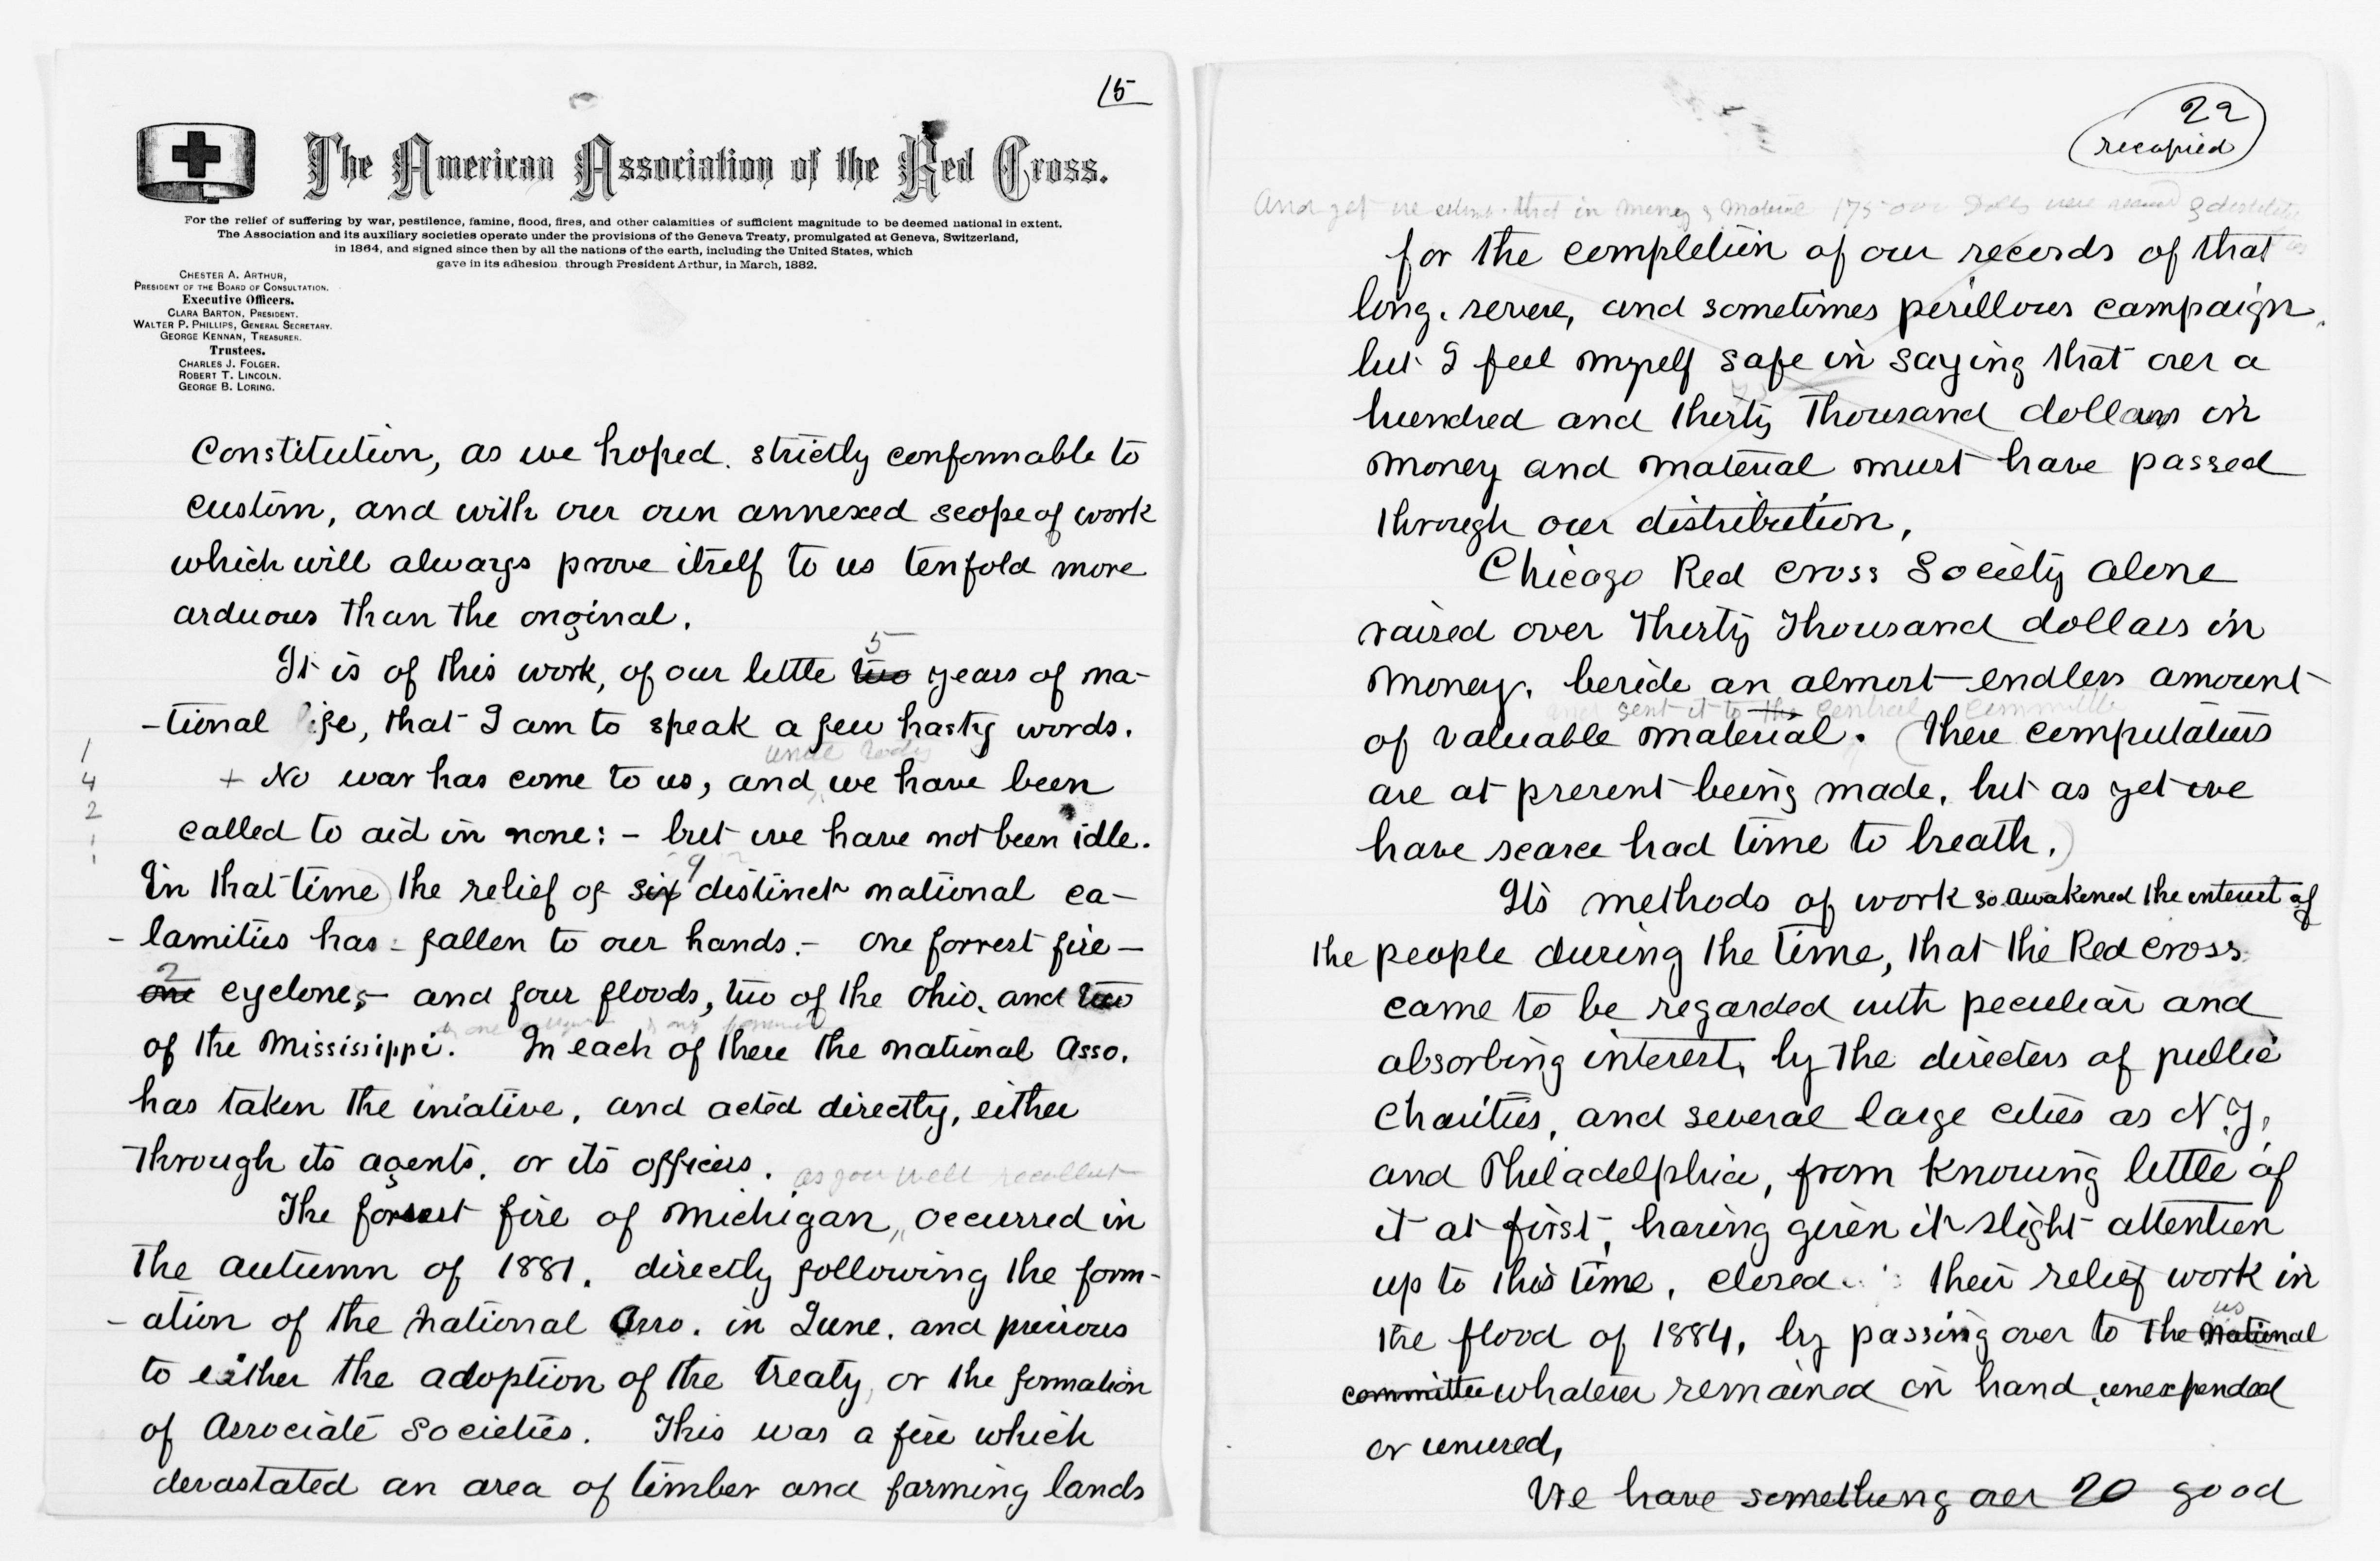 15
The American Association of the Red Cross.
For the relief of suffering by war, pestilence, famine, flood, fires, and other calamities of sufficient magnitude to be deemed national in extent.
The Association and its auxiliary societies operate under the provisions of the Geneva Treaty, promulgated at Geneva, Switzerland,
in 1864, and signed since then by all the nations of the earth, including the United States, which
gave in its adhesion through President Arthur, in March, 1882.
CHESTER A. ARTHUR,
PRESIDENT OF THE BOARD OF CONSULTATION.
Executive Officers.
CLARA BARTON, PRESIDENT.
WALTER P. PHILLIPS, GENERAL SECRETARY.
GEORGE KENNAN, TREASURER.
Trustees.
CHARLES J. FOLGER.
ROBERT T. LINCOLN.
GEORGE B. LORING.
Constitution, as we hoped. strictly conformable to
custom, and with our own annexed scope of work
which will always prove itself to us tenfold more
arduous than the original.
5
It is of this work, of our little two years of na-
-tional life, that I am to speak a few hasty words.
+ No war has come to us, and we have been
called to aid in none: - but we have not been idle.
9
In that time) the relief of six distinct national ca-
- lamities has fallen to our hands. - one forrest fire -
2
one cyclones - and four floods, two of the Ohio, and two
of the Mississippi. In each of these the national Asso.
has taken the iniative, and acted directly, either
through its agents, or its officers. as you well recollect
The forrest fire of Michigan, occurred in
the autumn of 1881. directly following the form-
- ation of the National Asso. in June, and previous
to either the adoption of the treaty, or the formation
of Associate Societies. This was a fire which
devastated an area of timber and farming lands
1
4
2
22
recopied
And yet we estimate that in money & material 175 000 Dolls were
for the completion of our records of that
long, severe, and sometimes perillous campaign,
but I feel myself safe in saying that over a
hundred and thirty thousand dollars in
money and material must have passed
through our distribution,
Chicago Red Cross Society alone
raised over Thirty Thousand dollars in
money, beside an almost endless amount
and sent it to the Central Committee
of valuable material. (These computations
are at present being made, but as yet we
have scarce had time to breath.)
Its methods of work so awakened the interest of
the people during the time, that the Red Cross
came to be regarded with peculiar and
absorbing interest, by the directors of public
Charities, and several large cities as N.Y.
and Philadelphia, from knowing little of
it at first, having given it slight attention
up to this time, closed their relief work in
us
the flood of 1884, by passing over to the National
committee whatever remained on hand, unexpended
or unused,
We have something over 20 good